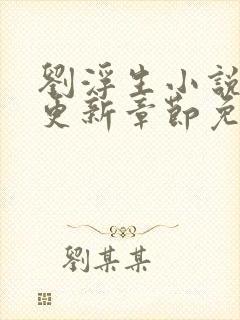 劉浮生小說
更新章節免
劉某某